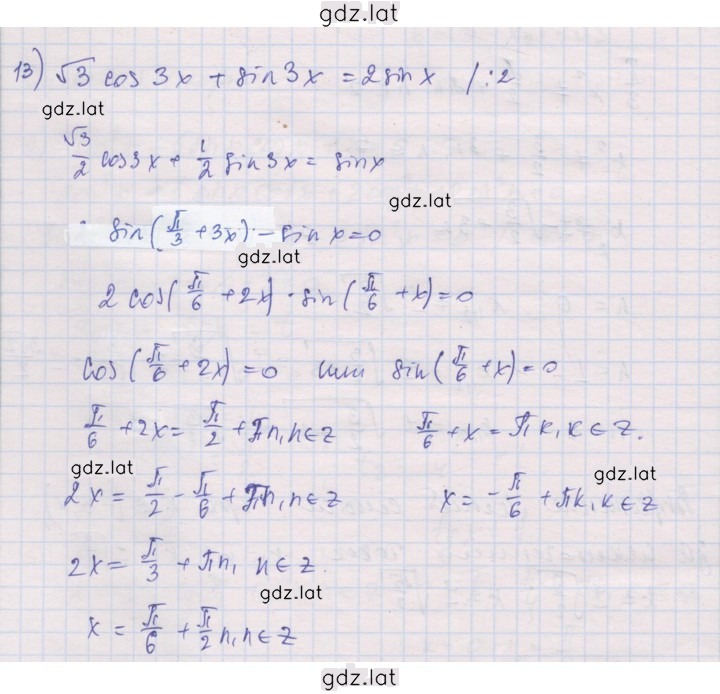 gdz.lat
13) √3 cos 3x + sin 3x = 2 sin x /:2
gdz.lat
√3/2 cos 3x + 1/2 sin 3x = sin x
gdz.lat
sin(π/3 + 3x) - sin x = 0
gdz.lat
2 cos(π/6 + 2x) · sin(π/6 + x) = 0
cos(π/6 + 2x) = 0 или sin(π/6 + x) = 0
π/6 + 2x = π/2 + πn, n ∈ Z π/6 + x = πk, k ∈ Z.
gdz.lat gdz.lat
2x = π/2 - π/6 + πn, n ∈ Z x = -π/6 + πk, k ∈ Z
2x = π/3 + πn, n ∈ Z.
gdz.lat
x = π/6 + π/2 n, n ∈ Z
gdz.lat